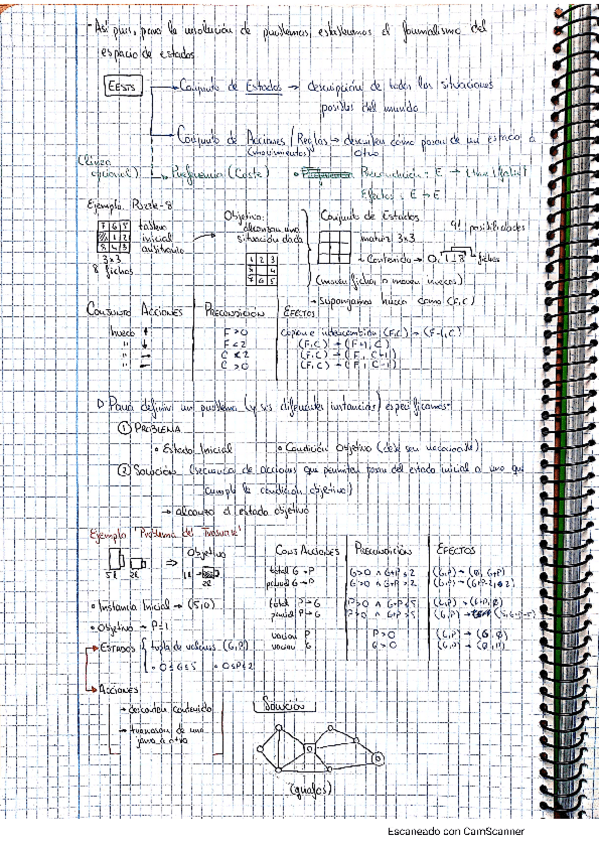 - Así pues, para la resolución de problemas, establecemos el formalismo del
espacio de estados
EESTS
Conjunto de Estados → descripción de todas las situaciones
posibles del mundo
Conjunto de Acciones / Reglas → describen cómo pasar de un estado a
(movimientos) otro
opcional) Preferencia (Coste) • Precondición: E →
Efectos: E → E
Ejemplo. Puzzle-8
7 6 5 tablero
1 2 inicial
8 4 3 arbitrario
3x3
8 fichas
Objetivo:
alcanzar una
situación dada
1 2 3
8 4
7 6 5
Conjunto de Estados
matriz 3x3
9! posibilidades
Contenido → 0, 1..8 fichas
(mover fichas o mover huecos)
→ Supongamos hueco como (F,C)
CONJUNTO ACCIONES PRECONDICIÓN EFECTOS
hueco ↑ F > 0 intercambio (F,C) → (F-1, C)
" ↓ F < 2 (F,C) → (F+1, C)
" → C < 2 (F,C) → (F, C+1)
" ← C > 0 (F,C) → (F, C-1)
Para definir un problema (y sus diferentes instancias) especificamos:
① PROBLEMA
• Estado Inicial • Condición Objetivo (debe ser
② SOLUCIÓN (secuencia de acciones que permiten pasar del estado inicial a uno que
cumple la condición objetivo)
→ alcanza el estado objetivo
Ejemplo "Problema del Trasvase"
5l 2l
Objetivo
1l
CONJ ACCIONES PRECONDICIÓN EFECTOS
total G→P G>0 ∧ G+P≤2 (G,P) → (0, G+P)
parcial G→P G>0 ∧ G+P>2 (G,P) → (G+P-2, 2)
total P→G P>0 ∧ G+P≤5 (G,P) → (G+P, 0)
parcial P→G P>0 ∧ G+P>5 (G,P) → (5, G+P-5)
vaciar P P>0 (G,P) → (G, 0)
vaciar G G>0 (G,P) → (0, P)
• Instancia Inicial → (5,0)
• Objetivo → P=1
→ ESTADOS { tupla de valores (G,P)
• 0≤G≤5 • 0≤P≤2
→ ACCIONES
→ descarten contenido
→ trasvasar de una
jarra a otra
Solución
(grafos)
Escaneado con CamScanner